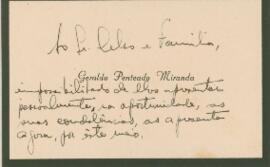 Ao Sr. Celso e Familia,
Geraldo Penteado Miranda
impossibilitado de lhes apresentar
pessoalmente, na oportunidade, as
suas condolências, as apresenta
agora, por este meio.